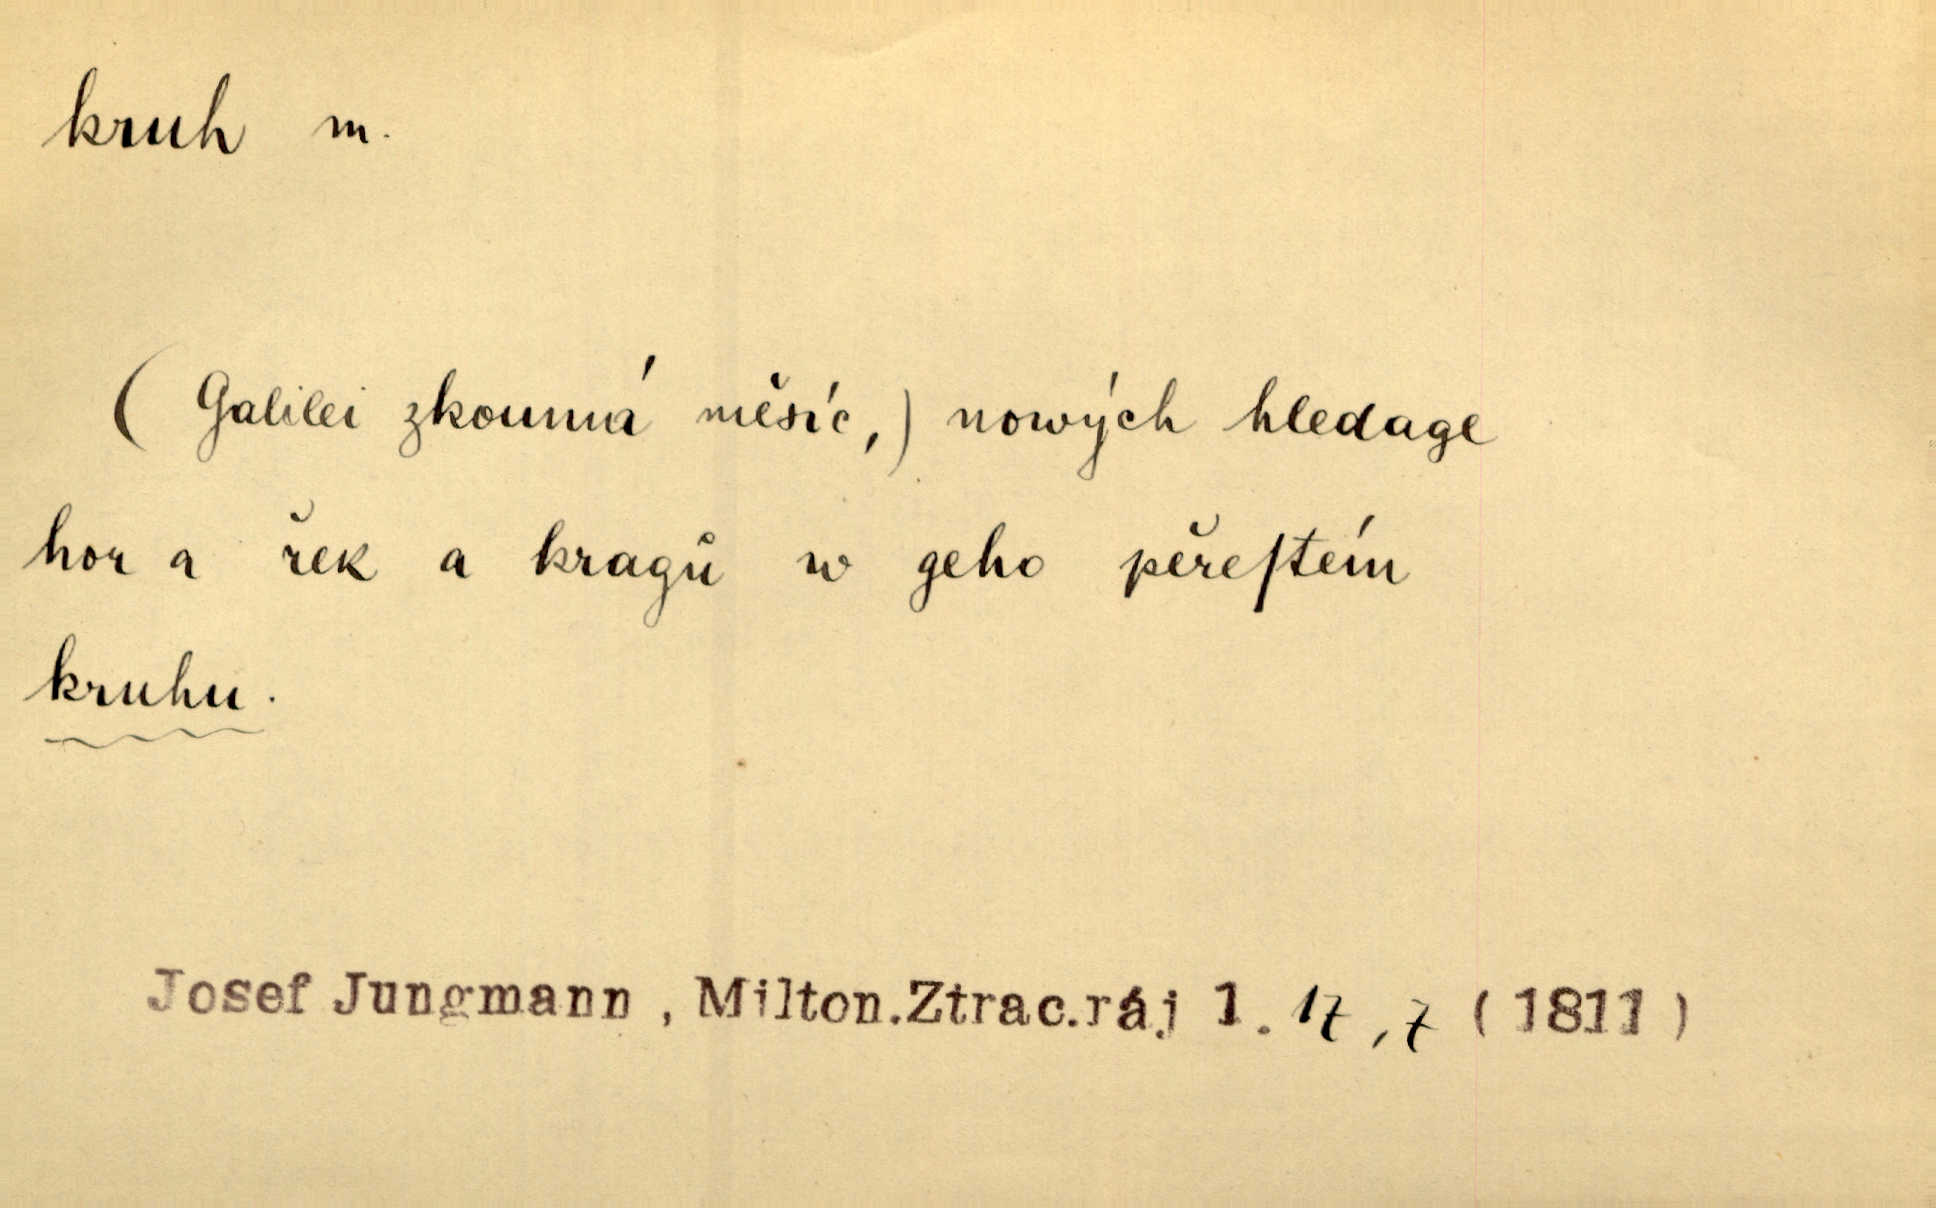 kruh m.
( Galilei zkoumá měsíc, ) nowých hledage
hor a řek a kragů w geho pěreſtém
kruhu.
Josef Jungmann , Milton.Ztrac.ráj 1. 17 , 7 ( 1811 )